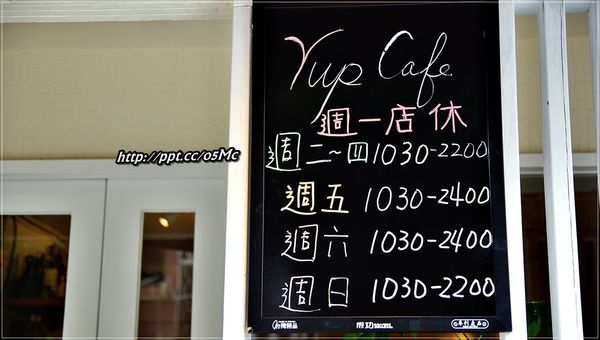 Yup Cafe
週一店休
週二~四 1030-2200
http://ppt.cc/o5Mc
週五 1030-2400
週六 1030-2400
週日 1030-2200
成功 success.